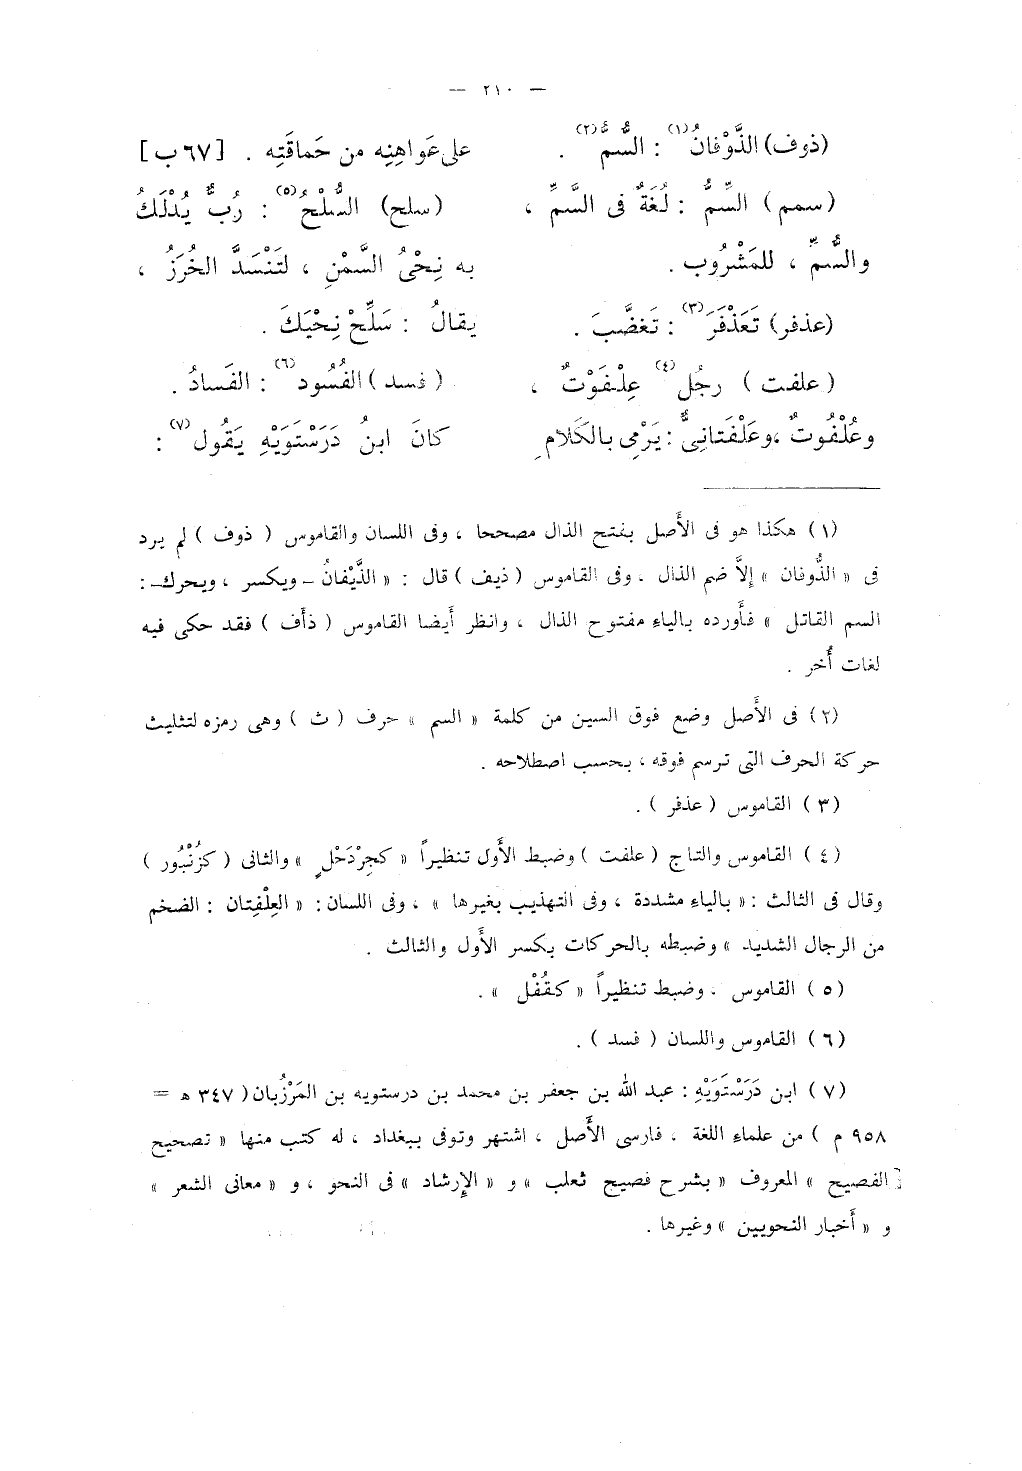 — ٢١٠ —
(ذوف) الذَّوْفانُ(١) : السُّم(٢) .
(سمم) السِّمُّ : لُغَةٌ فى السَّمِّ ،
والسُّمِّ ، للمَشْرُوب .
(عذفر) تَعَذْفَرَ(٣) : تَغضَّبَ .
(علفت) رجُل(٤) عِلْفَوْتٌ ،
وعُلْفُوتٌ ، وعَلْفَتانِىٌّ : يَرْمِى بالكَلامِ
على عَواهِنِه من حَماقَتِه . [٦٧ب]
(سلح) السُّلْحُ(٥) : رُبٌّ يُدْلَكُ
به نِحْىُ السَّمْنِ ، لتَنْسَدَّ الخُرَزُ ،
يقالُ : سَلِّحْ نِحْيَكَ .
(فسد) الفُسُود(٦) : الفَسادُ .
كانَ ابنُ دَرَسْتَوَيْهِ يَقُول(٧) :
(١) هكذا هو فى الأَصل بفتح الذال مصححا ، وفى اللسان والقاموس ( ذوف ) لم يرد
فى « الذُّوفان » إلاَّ ضم الذال . وفى القاموس ( ذيف ) قال : « الذَّيْفانُ – ويكسر ، ويحرك – :
السم القاتل » فأَورده بالياء مفتوح الذال ، وانظر أَيضا القاموس ( ذأف ) فقد حكى فيه
لغات أُخر .
(٢) فى الأَصل وضع فوق السين من كلمة « السم » حرف ( ث ) وهى رمزه لتثليث
حركة الحرف التى ترسم فوقه ، بحسب اصطلاحه .
(٣) القاموس ( عذفر ) .
(٤) القاموس والتاج ( علفت ) وضبط الأَول تنظيراً « كجِرْدَحْلٍ » والثانى ( كزُنْبُور )
وقال فى الثالث : « بالياء مشددة ، وفى التهذيب بغيرها » ، وفى اللسان : « العِلْفِتان : الضخم
من الرجال الشديد » وضبطه بالحركات بكسر الأَول والثالث .
(٥) القاموس . وضبط تنظيراً « كقُفْل » .
(٦) القاموس واللسان ( فسد ) .
(٧) ابن دَرَسْتَوَيْهِ : عبد الله بن جعفر بن محمد بن درستويه بن المَرْزُبان ( ٣٤٧ ه =
٩٥٨ م ) من علماء اللغة ، فارسى الأَصل ، اشتهر وتوفى ببغداد ، له كتب منها « تصحيح
الفصيح » المعروف « بشرح فصيح ثعلب » و « الإرشاد » فى النحو ، و « معانى الشعر »
و « أَخبار النحويين » وغيرها .